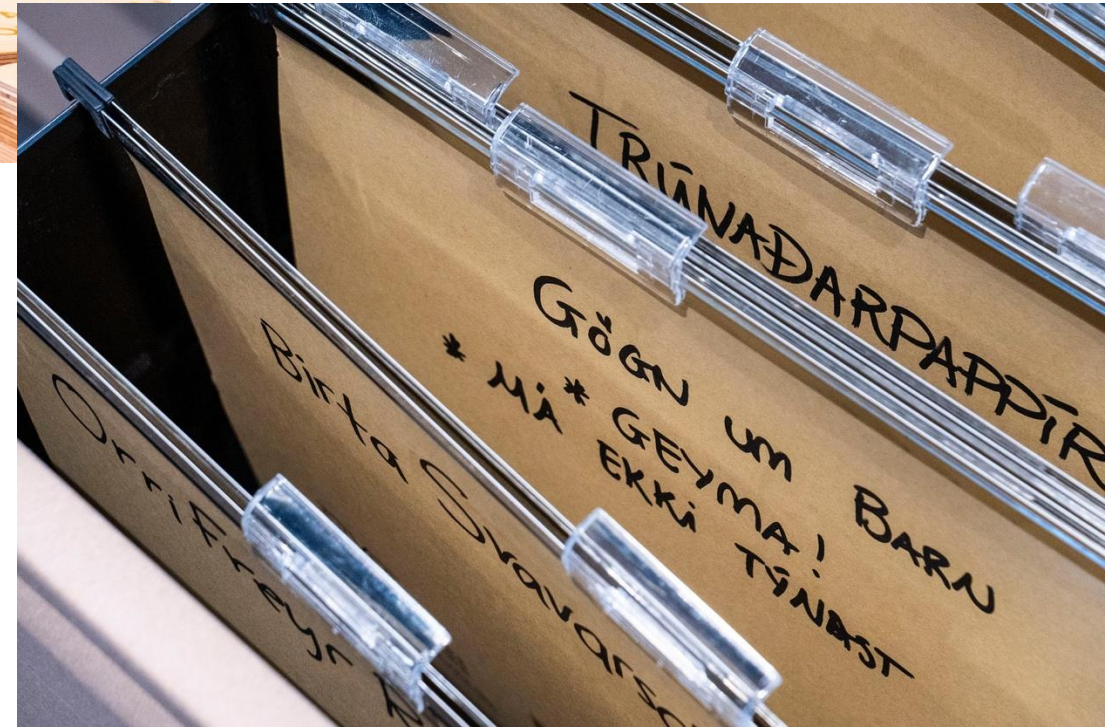 TRÚNAÐARPAPPÍR
GÖGN UM BARN
* GEYMA!
* MÁ EKKI TÝNAST
Birta Svavarsd
Orri Freyr